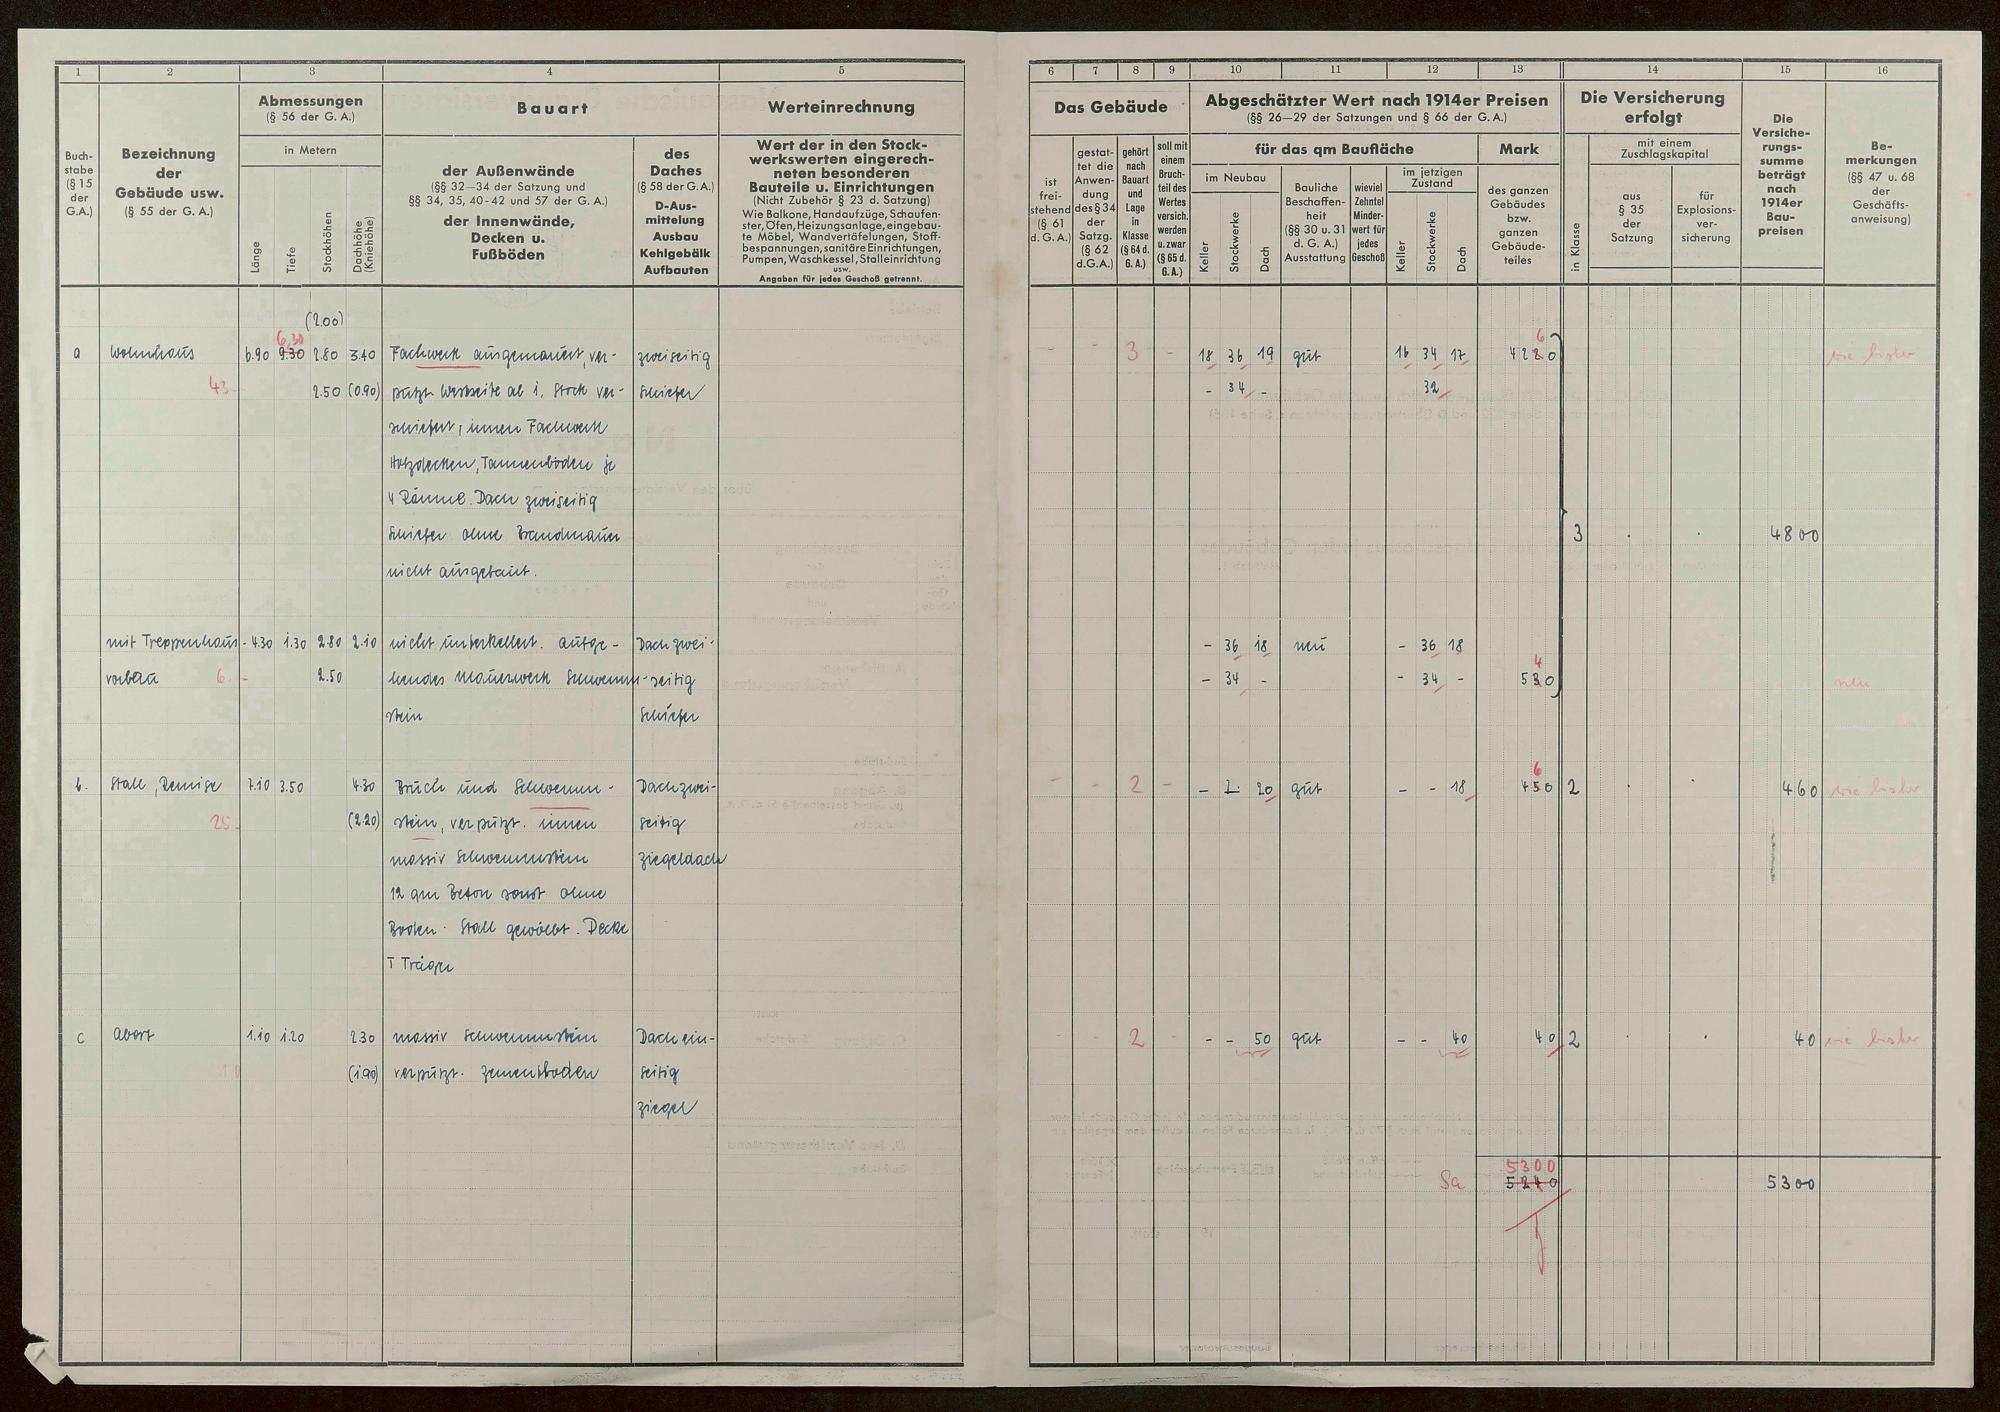 1 2 3 4 5
Buch-
stabe
(§ 15
der
G.A.)
Bezeichnung
der
Gebäude usw.
(§ 55 der G. A.)
Abmessungen
(§ 56 der G. A.)
in Metern
Länge
Tiefe
Stockhöhen
Dachhöhe
(Kniehöhe)
Bauart
der Außenwände
(§§ 32—34 der Satzung und
§§ 34, 35, 40-42 und 57 der G. A.)
der Innenwände,
Decken u.
Fußböden
des
Daches
(§ 58 der G.A.)
D-Aus-
mittelung
Ausbau
Kehlgebälk
Aufbauten
Werteinrechnung
Wert der in den Stock-
werkswerten eingerech-
neten besonderen
Bauteile u. Einrichtungen
(Nicht Zubehör § 23 d. Satzung)
Wie Balkone, Handaufzüge, Schaufen-
ster, Öfen, Heizungsanlage, eingebau-
te Möbel, Wandvertäfelungen, Stoff-
bespannungen, sanitäre Einrichtungen,
Pumpen, Waschkessel, Stalleinrichtung
usw.
Angaben für jedes Geschoß getrennt.
(2.00)
6,30
a Wohnhaus 6.90 9.30 2.80 3.40 Fachwerk ausgemauert, ver- zweiseitig
43 2.50 (0.90) putzt Westseite ab 1. Stock ver- Schiefer
schiefert, innen Fachwerk
Holzdecken, Tannenböden je
4 Räume. Dach zweiseitig
Schiefer ohne Brandmauer
nicht ausgebaut.
mit Treppenhaus- 4.30 1.30 2.80 2.10 nicht unterkellert. aufge- Dach zwei-
vorbau 6. 2.50 hendes Mauerwerk Schwemm- seitig
stein Schiefer
b. Stall, Remise 7.10 3.50 4.30 Bruch und Schwemm- Dach zwei-
25. (2.20) stein, verputzt. innen seitig
massiv Schwemmstein Ziegeldach
12 qm Beton sonst ohne
Boden. Stall gewölbt. Decke
T Träger
c Abort 1.10 1.20 2.30 massiv Schwemmstein Dach ein-
(1.90) verputzt. Zementboden seitig
Ziegel
6 7 8 9 10 11 12 13 14 15 16
Das Gebäude
ist
frei-
stehend
(§ 61
d. G. A.)
gestat-
tet die
Anwen-
dung
des § 34
der
Satzg.
(§ 62
d.G.A.)
gehört
nach
Bauart
und
Lage
in
Klasse
(§ 64 d.
G. A.)
soll mit
einem
Bruch-
teil des
Wertes
versich.
werden
u. zwar
(§ 65 d.
G. A.)
Abgeschätzter Wert nach 1914er Preisen
(§§ 26—29 der Satzungen und § 66 der G. A.)
für das qm Baufläche
im Neubau
Keller
Stockwerke
Dach
Bauliche
Beschaffen-
heit
(§§ 30 u. 31
d. G. A.)
Ausstattung
wieviel
Zehntel
Minder-
wert für
jedes
Geschoß
im jetzigen
Zustand
Keller
Stockwerke
Dach
Mark
des ganzen
Gebäudes
bzw.
ganzen
Gebäude-
teiles
Die Versicherung
erfolgt
in Klasse
mit einem
Zuschlagskapital
aus
§ 35
der
Satzung
für
Explosions-
ver-
sicherung
Die
Versiche-
rungs-
summe
beträgt
nach
1914er
Bau-
preisen
Be-
merkungen
(§§ 47 u. 68
der
Geschäfts-
anweisung)
6
- - 3 - 18 36 19 gut 16 34 17 4220 wie bisher
- 34 - 32
3 . . 4800
- 36 18 neu - 36 18
4
- 34 - - 34 - 530 neu
6
- - 2 - - - 20 gut - - 18 450 2 . . 460 wie bisher
- - 2 - - - 50 gut - - 40 40 2 . . 40 wie bisher
5300
Sa 5240 5300